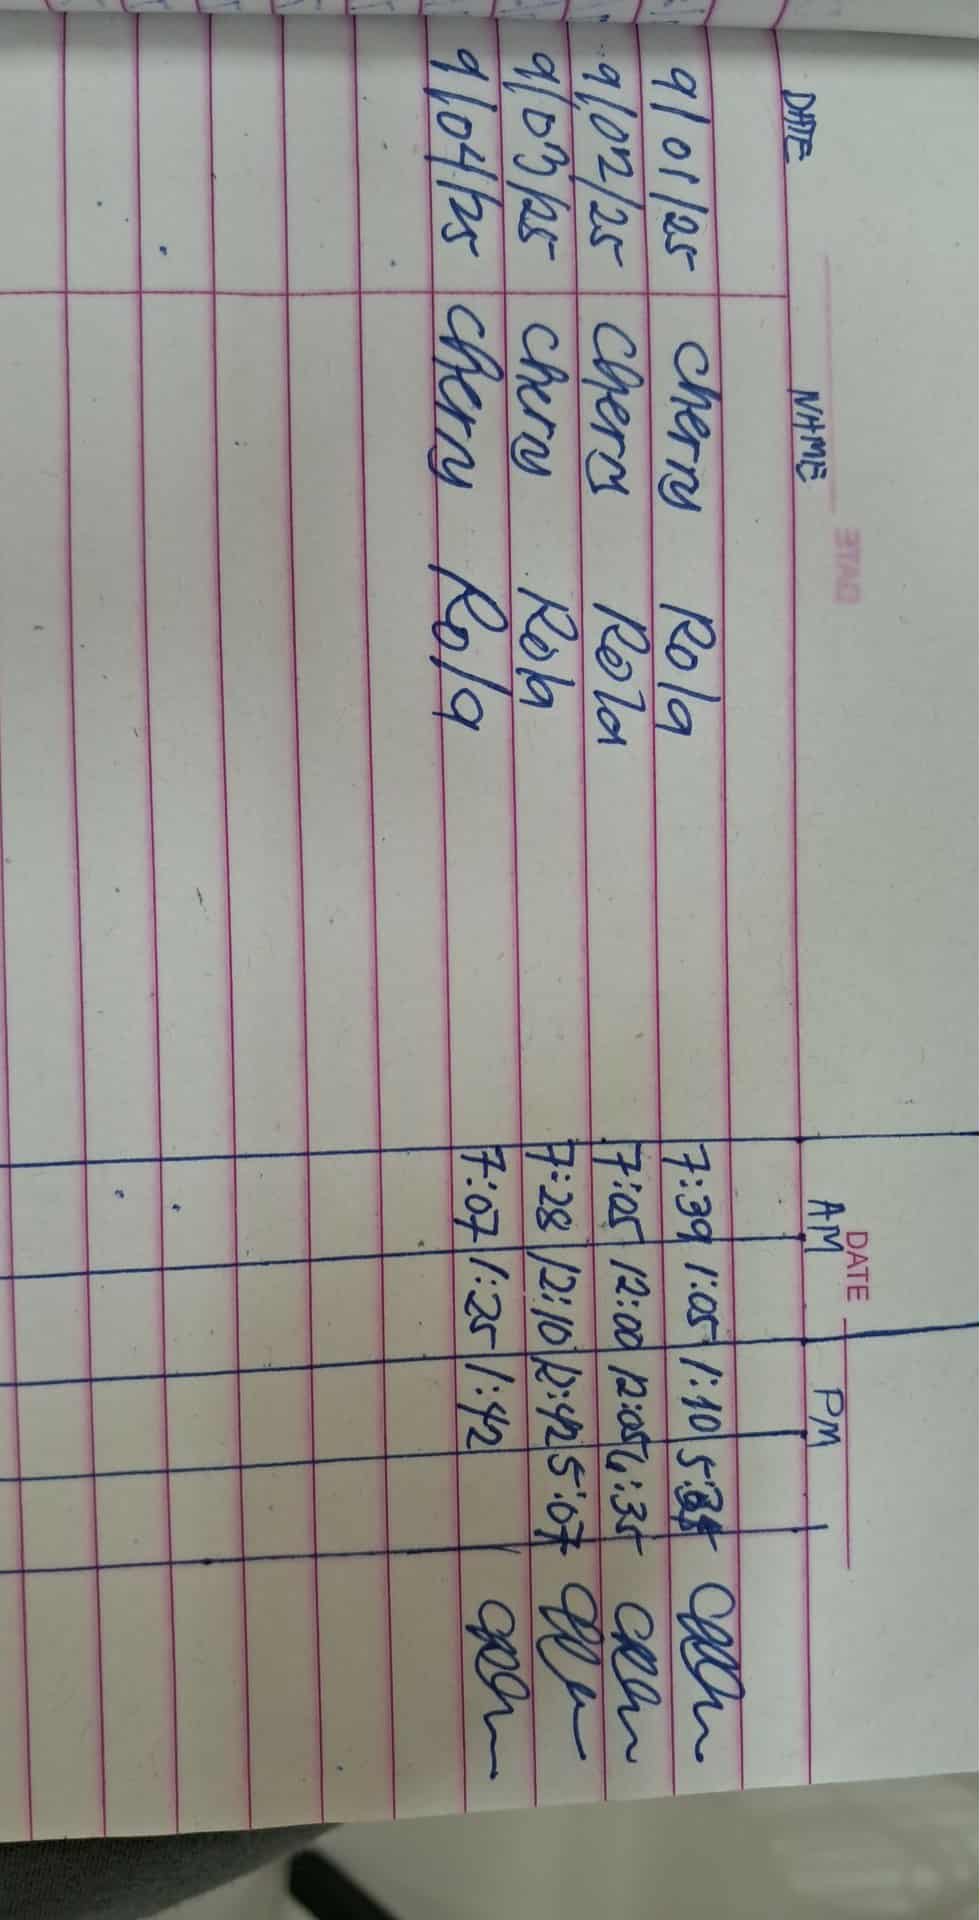 DATE NAME AM DATE PM
9/01/25 Cherry Rola 7:39 1:05 1:10
9/02/25 Cherry Rola 7:05 12:00 12:05 6:35
9/03/25 Cherry Rola 7:28 12:10 12:42 5:07
9/04/25 Cherry Rola 7:07 1:25 1:42
DATE